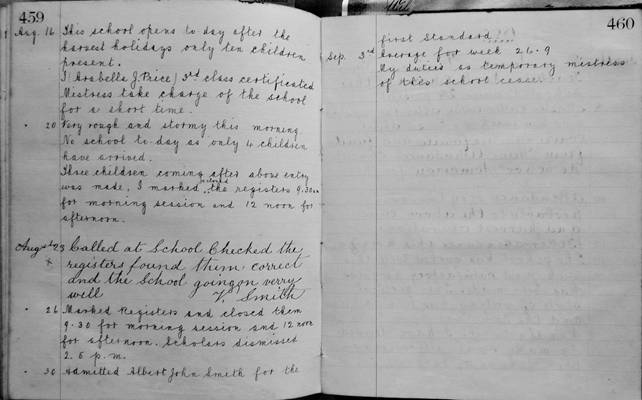 459
Aug. 16 This school opens to-day after the
harvest holidays only ten children
present.
I Arabella J. Price / 3rd class certificated
Mistress take charge of the school
for a short time.
" 20 Very rough and stormy this morning
No school to-day as only 4 children
have arrived.
Three children coming after above entry
was made, I marked the registers 9.30 a.m
for morning session and 12 noon for
afternoon.
August 23 Called at School Checked the
registers found them correct
and the School going on verry
well V. Smith
" 26 Marked Registers and closed them
9.30 for morning session and 12 noon
for afternoon. Scholars dismissed
2.5 p.m.
" 30 Admitted Albert John Smith for the
460
first Standard
Sep. 3rd Average for week 26.9
My duties as temporary mistress
of this school cease.